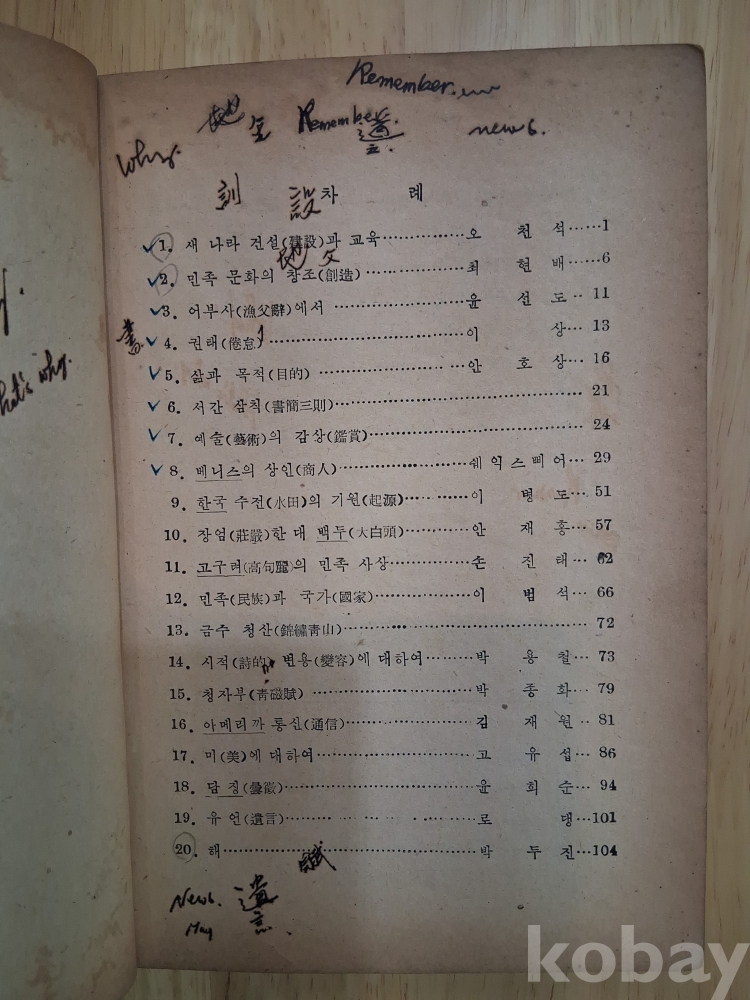 Remember.
Why. 地 全 Remember. 遺言. new 6.
訓 設 차 례
✓1. 새 나라 건설(建設)과 교육 오 천 석 1
地 文
✓2. 민족 문화의 창조(創造) 최 현 배 6
✓3. 어부사(漁父辭)에서 윤 선 도 11
✓4. 권태(倦怠) 이 상 13
hat's why.
✓5. 삶과 목적(目的) 안 호 상 16
✓6. 서간 삼칙(書簡三則) 21
✓7. 예술(藝術)의 감상(鑑賞) 24
✓8. 베니스의 상인(商人) 쉐익스삐어 29
9. 한국 수전(水田)의 기원(起源) 이 병 도 51
10. 장엄(莊嚴)한 대 백두(大白頭) 안 재 홍 57
11. 고구려(高句麗)의 민족 사상 손 진 태 62
12. 민족(民族)과 국가(國家) 이 범 석 66
13. 금수 청산(錦繡靑山) 72
14. 시적(詩的) 변용(變容)에 대하여 박 용 철 73
15. 청자부(靑磁賦) 박 종 화 79
16. 아메리까 통신(通信) 김 재 원 81
17. 미(美)에 대하여 고 유 섭 86
18. 담징(曇徵) 윤 희 순 94
19. 유언(遺言) 로 댕 101
20. 해 박 두 진 104
賦
New 6. 遺言.
May
kobay